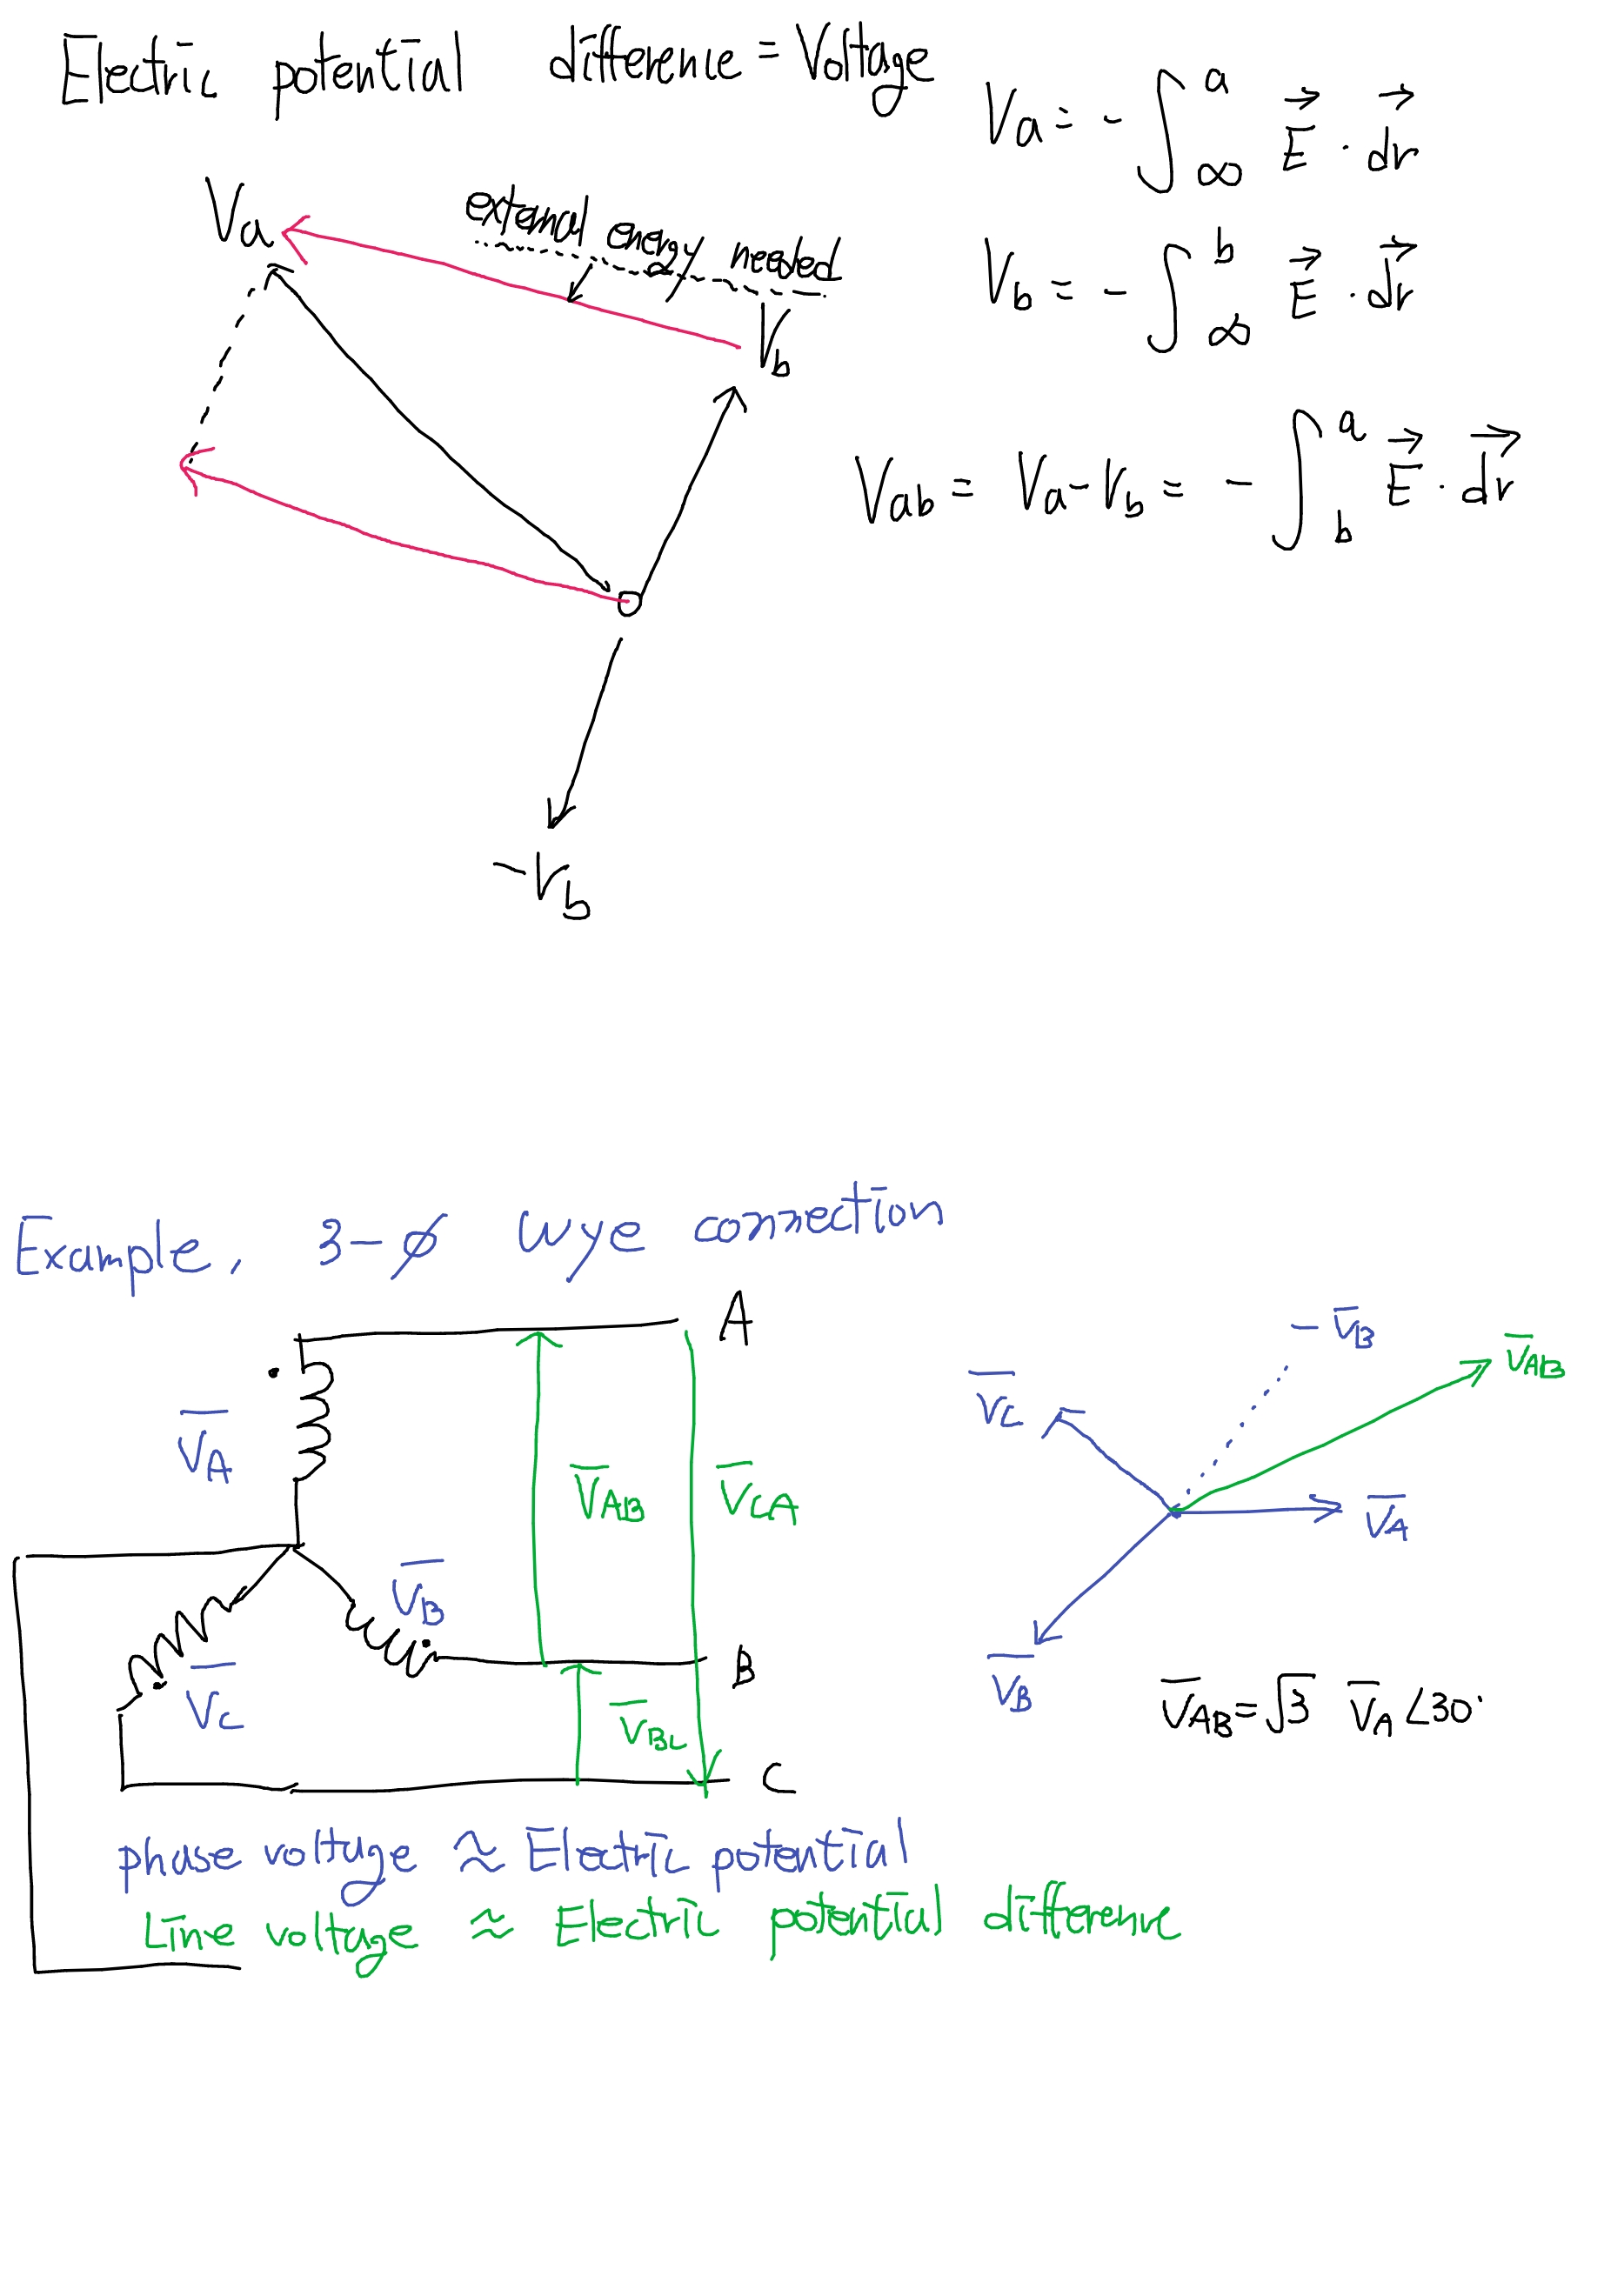 Electric potential difference = Voltage
Va = - ∫_∞^a E⃗ · dr⃗
Va
external energy needed
Vb = - ∫_∞^b E⃗ · dr⃗
Vb
Vab = Va - Vb = - ∫_b^a E⃗ · dr⃗
-Vb
Example, 3-ϕ wye connection
A
-V̅B
V̅AB
V̅C
V̅A
V̅AB
V̅CA
V̅A
V̅B
B
V̅C
V̅BC
V̅B
V̅AB = √3 V̅A ∠30°
C
phase voltage ≈ Electric potential
Line voltage ≈ Electric potential difference